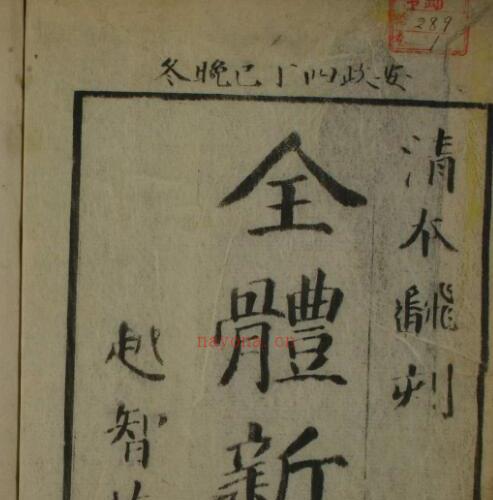 安政四丁巳晩冬
清本翻刻
全體新
越智
289
1
nayona.cn